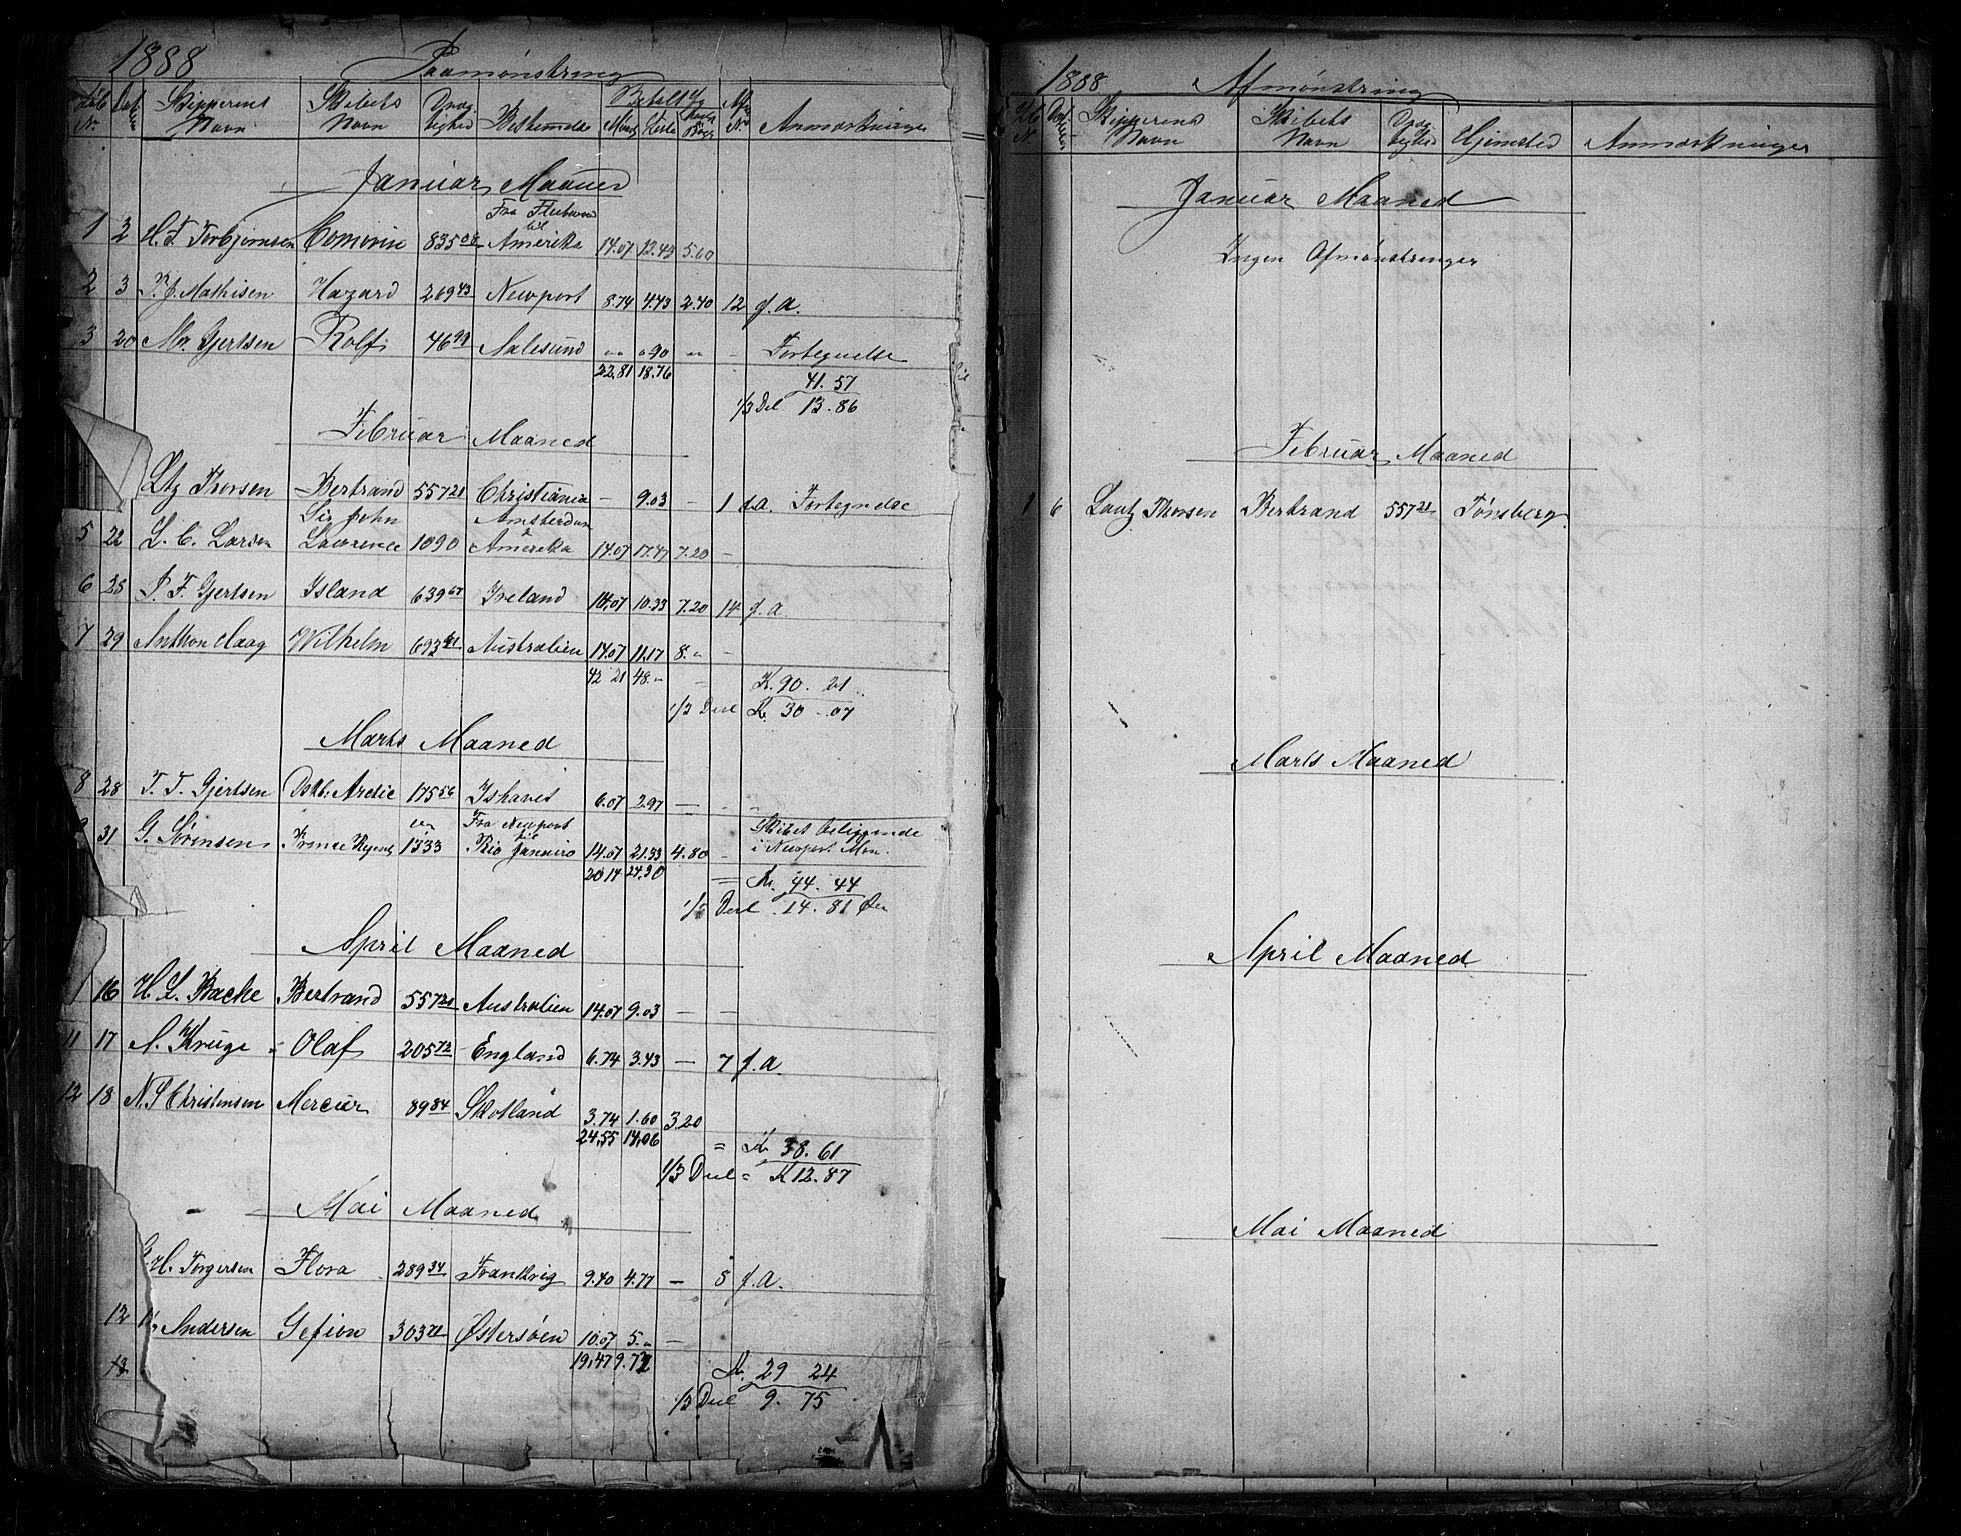 1888 Paamønstring
Løb No Datum Skipperens Navn Skibets Navn Dræg tighed Bestemelse Betalt Mønst Hirse Navn Anmærkninger
Januar Maaned
Fra
til
1 2 H. T. Torbjørnsen Comorin 835 08 Amerika 14.07 13.43 5.60
2 3 Mathisen Hazard 269 43 Newport 8.74 4.43 2.40 12 f. a.
3 20 Gjertsen Rolf 46 99 Aalesund " " 0 90 " - Fortegnelse
22.81 18.76 41. 57
1/3 Del 13. 86
Februar Maaned
Ltz Thorsen Bertrand 557 21 Christiania - 9.03 - 1 f.a. Fortegnelse
Sir John Amsterdam
5 22 L. C. Larsen Lawrence 1090 Amerika 14.07 17.47 7.20 -
6 25 P. F. Gjertsen Island 639 67 Ireland 14.07 10.33 7.20 14 f. a.
7 29 Anthon Haag Wilhelm 693 41 Australien 14.07 11.17 8." -
42 21 48." - K. 90. 21
1/3 Deel K. 30 - 07
Marts Maaned
8 28 T. T. Gjertsen Arctic 175 56 Ishavet 6.07 2.97 — -
Fra Newport Skibet beliggende
til
31 G. Sørensen Prince Regent 1333 Rio Janairo 14.07 21.33 4.80 - i Newport Mon.
20 14 24.30 = Kr. 44. 44
1/3 Deel . 14. 81 Øre
April Maaned
1 16 H. L. Backe Bertrand 557 21 Australien 14.07 9.03 — —
11 17 A. Kruge Olaf 205 72 England 6.74 3.43 — 7 f. a.
12 18 N. S Christensen Mercur 89 84 Skotland 3.74 1.60 3.20
24,55 14,06 = Kr 38. 61
1/3 Deel = K 12. 87
Mai Maaned
H. Torgersen Flora 289 34 Frankrig 9.40 4.77 — 8 f. a.
12 Andersen Gefion 303 Østersøen 10.07 5." —
13 19,47 9.77 Kr. 29 24
1/3 Deel 9. 75
1888 Afmønstring
Skipperens Navn Skibets Navn Dræg tighed Hjemsted Anmærkninger
Januar Maaned
Ingen Afmønstringer
Februar Maaned
1 6 Lautz Thorsen Bertrand 557 21 Tønsberg
Marts Maaned
April Maaned
Mai Maaned